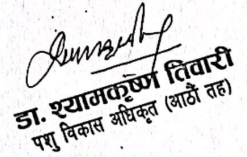 डा. श्यामकृष्ण तिवारी
पशु विकास अधिकृत (आठौं तह)